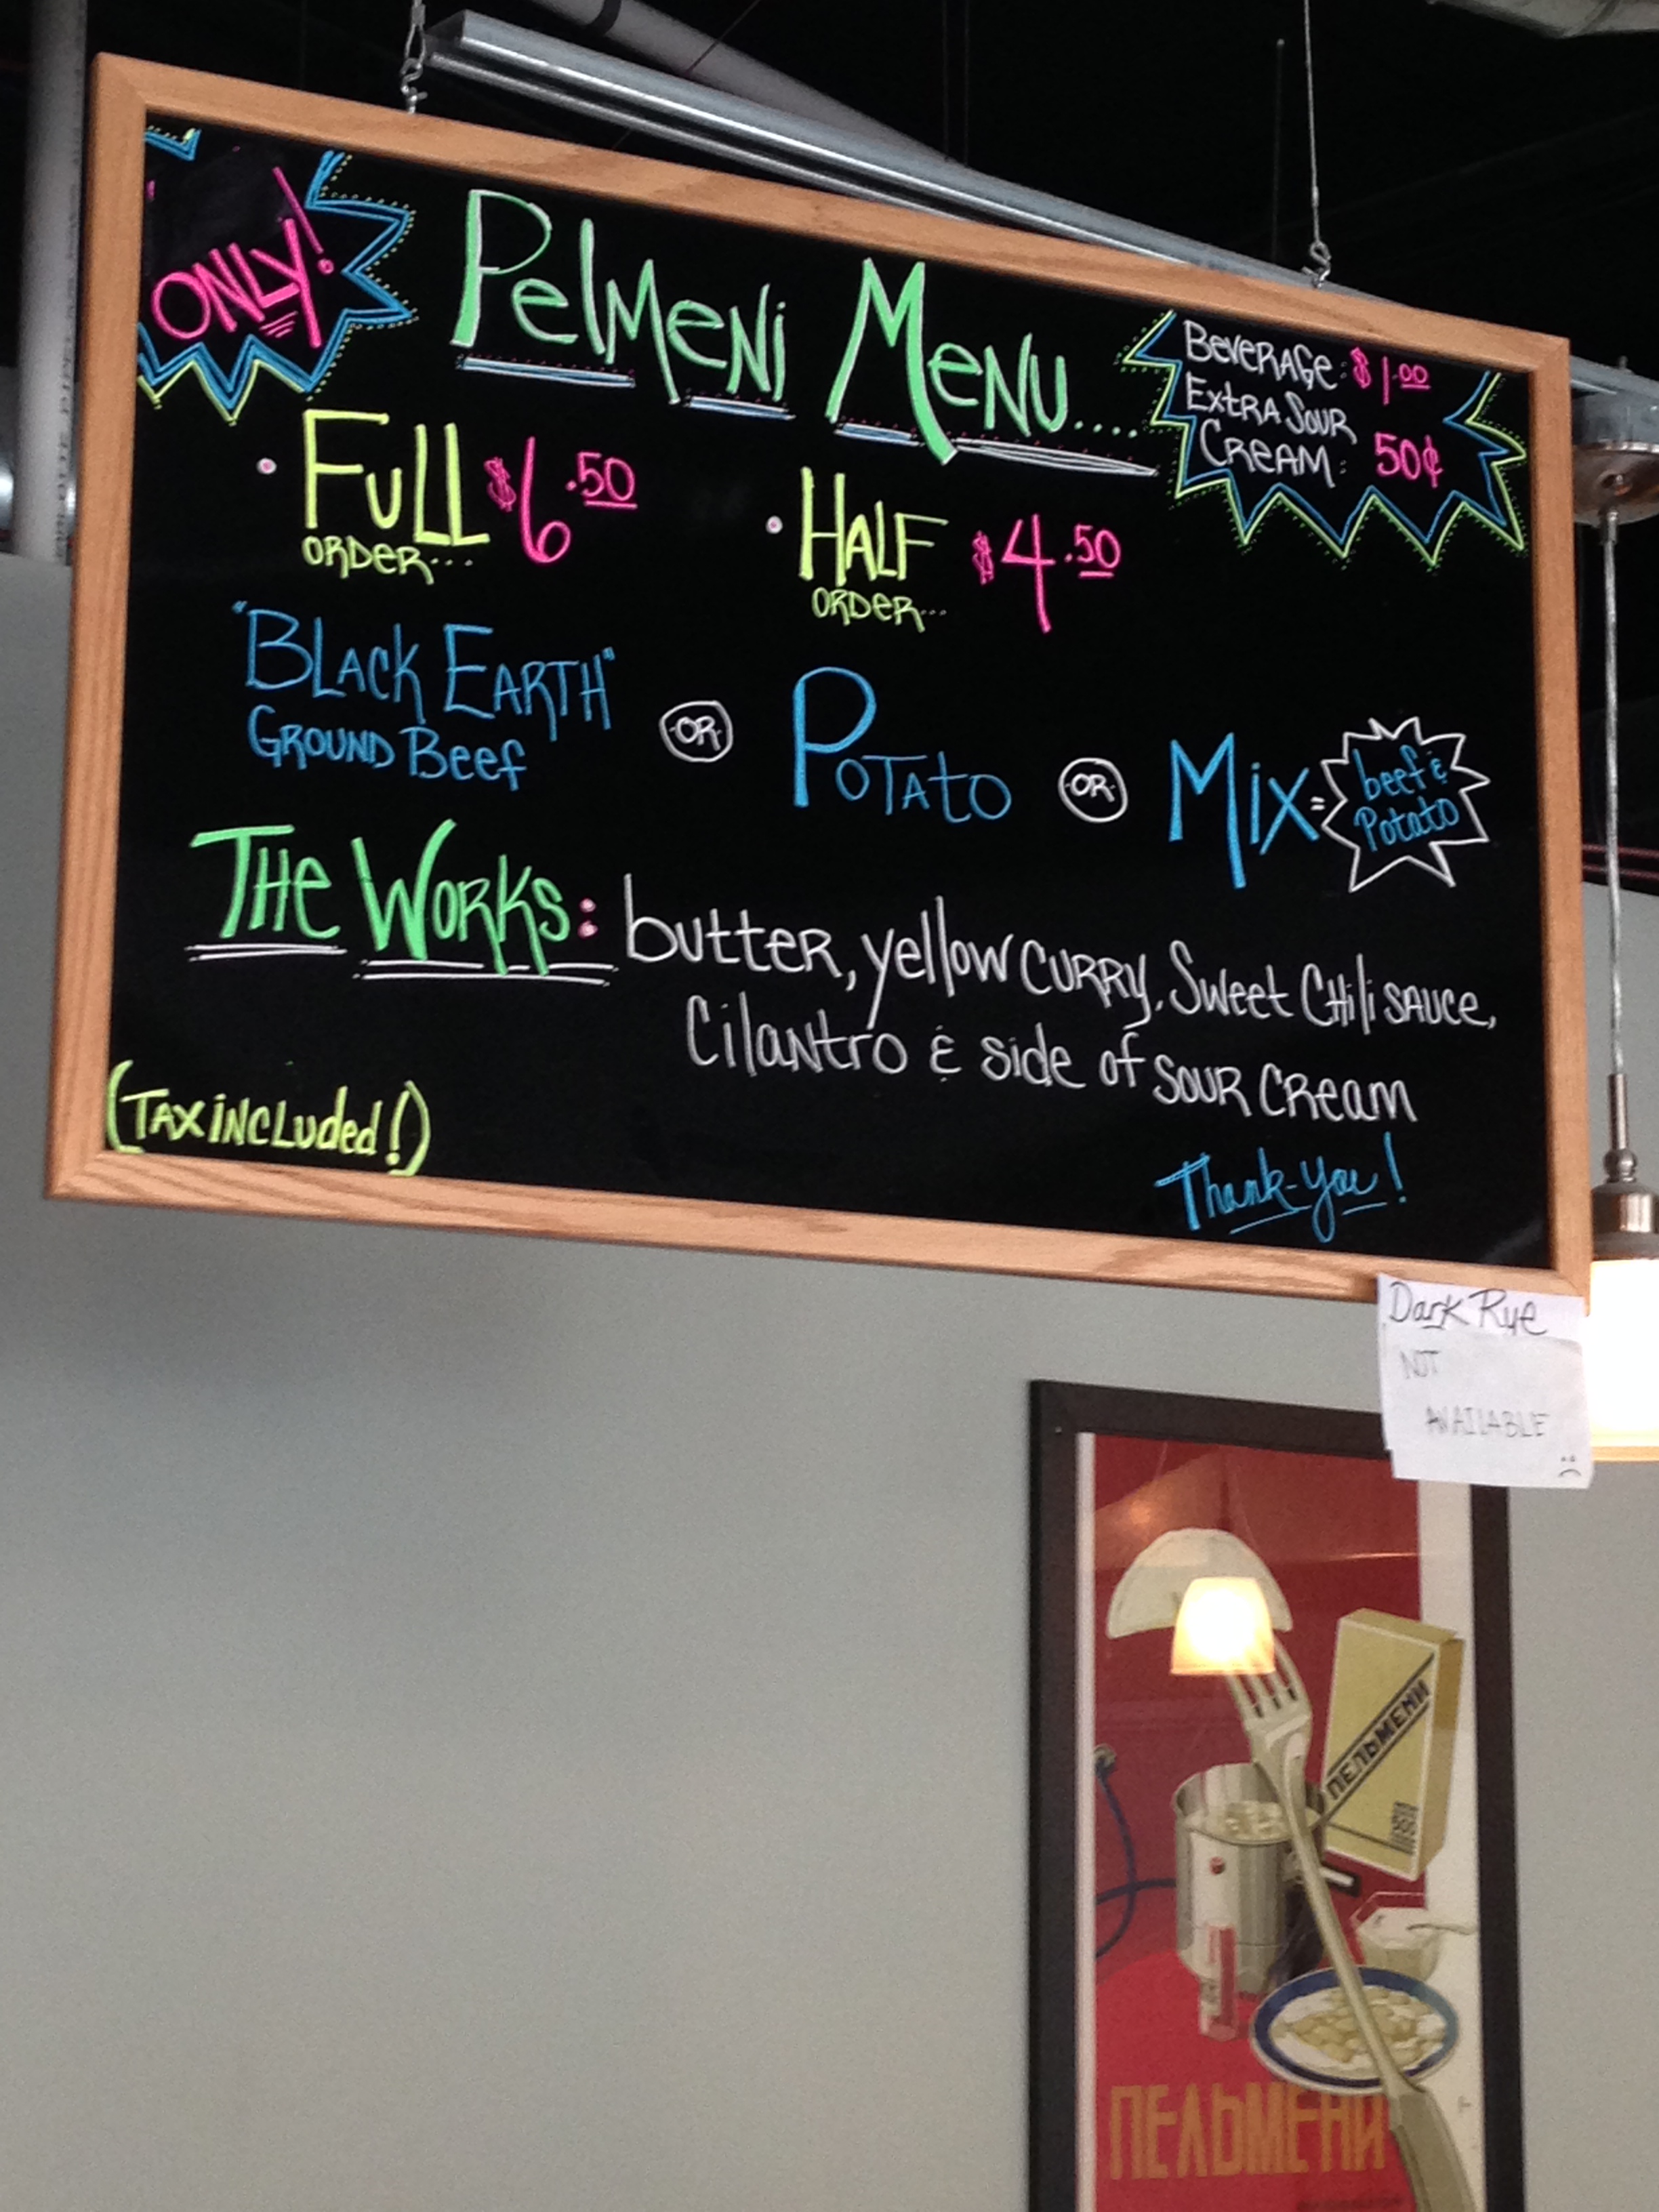 ONLY!
Pelmeni Menu....
Beverage: $1.00
Extra Sour
Cream: 50¢
• Full $6.50
order...
• Half $4.50
order...
"Black Earth"
Ground Beef
OR
Potato
OR
Mix =
beef &
Potato
The Works: butter, yellow curry, Sweet Chili sauce,
Cilantro & side of sour cream
(Tax included!)
Thank-you!
Dark Rye
NOT
AVAILABLE
ПЕЛЬМЕНИ
ПЕЛЬМЕНИ